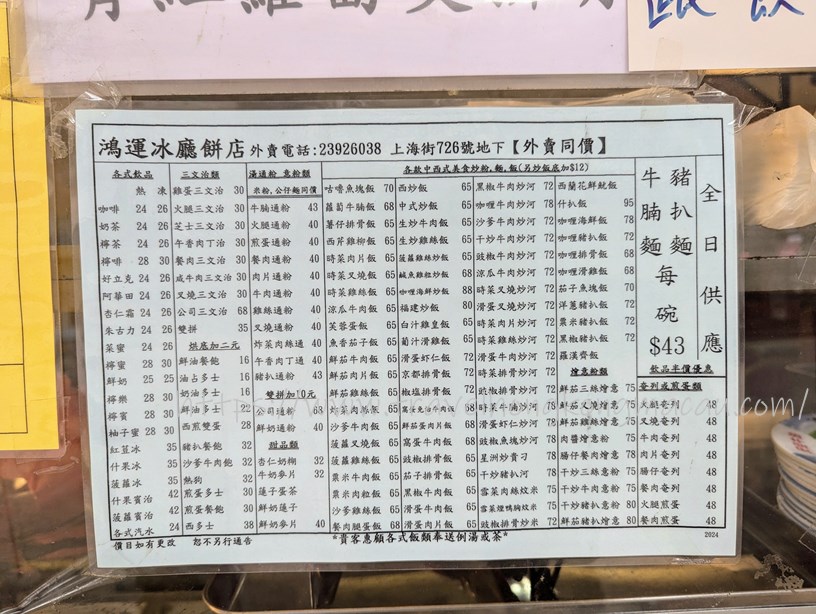 鴻運冰廳餅店 外賣電話:23926038 上海街726號地下【外賣同價】
各式飲品
熱 凍
咖啡 24 26
奶茶 24 26
檸茶 24 26
檸啡 28 30
好立克 24 26
阿華田 24 26
杏仁霜 24 26
朱古力 24 26
菜蜜 24 26
檸蜜 28 30
鮮奶 25 25
檸樂 28 30
檸賓 28 30
柚子蜜 28 30
紅荳冰 35
什果冰 35
菠蘿冰 35
什果賓治 42
菠蘿賓治 42
各式汽水 24
三文治類
雞蛋三文治 30
火腿三文治 30
芝士三文治 30
午香肉丁治 30
餐肉三文治 30
咸牛肉三文治 30
叉燒三文治 30
公司三文治 68
雙拼 35
烘底加二元
鮮油餐飽 16
油占多士 16
奶油多士 16
鮮油多士 22
西煎雙蛋 28
豬扒餐飽 32
沙爹牛肉飽 32
熱狗 32
煎蛋多士 30
煎蛋餐飽 30
西多士 38
湯通粉 意粉類
米粉,公仔麵同價
牛腩通粉 43
火腿通粉 40
煎蛋通粉 40
餐肉通粉 40
肉片通粉 40
牛肉通粉 40
雞絲通粉 40
叉燒通粉 40
炸菜肉絲通 40
午香肉丁通 40
豬扒通粉 43
雙拼加10元
公司通粉 68
鮮奶通粉 40
甜品類
杏仁奶糊 32
牛奶麥片 32
蓮子蛋茶
鮮奶蓮子
鮮奶麥片 40
各款中西式美食炒粉,麵,飯(另炒飯底加$12)
咕嚕魚塊飯 70
蘿蔔牛腩飯 68
薯仔排骨飯 65
西芹雞柳飯 65
時菜肉片飯 65
時菜叉燒飯 65
時菜雞絲飯 65
涼瓜牛肉飯 65
芙蓉蛋飯 65
魚香茄子飯 65
鮮茄牛肉飯 65
鮮茄肉片飯 65
鮮茄雞絲飯 65
炸菜肉絲飯 65
沙爹牛肉飯 65
菠蘿叉燒飯 65
菠蘿雞絲飯 65
粟米牛肉飯 65
粟米肉粒飯 65
鮮茄餐蛋飯 65
餐肉腿蛋飯 68
西炒飯 65
中式炒飯 65
生炒牛肉飯 65
生炒雞絲飯 65
菠蘿雞絲炒飯 65
鹹魚雞粒炒飯 68
咖喱海鮮炒飯 88
福建炒飯 80
白汁雞皇飯 65
葡汁雞絲飯 65
滑蛋蝦仁飯 72
京都排骨飯 72
椒塩排骨飯 72
窩蛋免治牛肉飯 68
鮮茄蛋片肉飯 68
窩蛋牛肉飯 68
豉椒排骨飯 68
茄子排骨飯 68
黑椒牛肉飯 65
滑蛋牛肉飯 65
滑蛋肉片飯 65
黑椒牛肉炒河 72
咖喱牛肉炒河 72
沙爹牛肉炒河 72
干炒牛肉炒河 72
豉椒牛肉炒河 72
涼瓜牛肉炒河 72
時菜牛肉炒河 72
滑蛋叉燒炒河 72
時菜肉片炒河 72
時菜雞絲炒河 72
滑蛋牛肉炒河 72
時菜排骨炒河 78
豉椒排骨炒河 72
時菜牛腩炒河 78
滑蛋蝦仁炒河 78
豉椒魚塊炒河 78
星洲炒貴刁 78
干炒豬扒河 78
雪菜肉絲炆米 75
雪菜燒鴨腩炆米 75
豉椒排骨炒米 72
西蘭花鮮魷飯
什扒飯 95
咖喱海鮮飯 78
咖喱豬扒飯 72
咖喱排骨飯 68
咖喱滑雞飯 68
茄子魚塊飯 70
洋蔥豬扒飯 72
粟米豬扒飯 72
黑椒豬扒飯 72
羅漢齋飯
燴意粉類
鮮茄三絲燴意 75
鮮茄叉燒燴意 75
肉醬燴意粉 75
腸仔餐肉燴意 75
干炒三絲意粉 75
干炒牛肉意粉 75
干炒豬扒意粉 80
鮮茄豬扒燴意 80
豬扒麵
牛腩麵
每碗
$43
全日供應
飲品半價優惠
奄列或煎蛋類
火腿奄列 48
叉燒奄列 48
牛肉奄列 48
肉片奄列 48
腸仔奄列 48
餐肉奄列 48
火腿煎蛋 48
餐肉煎蛋 48
價目如有更改 恕不另行通告
*貴客惠顧各式飯類奉送例湯或茶*
2024